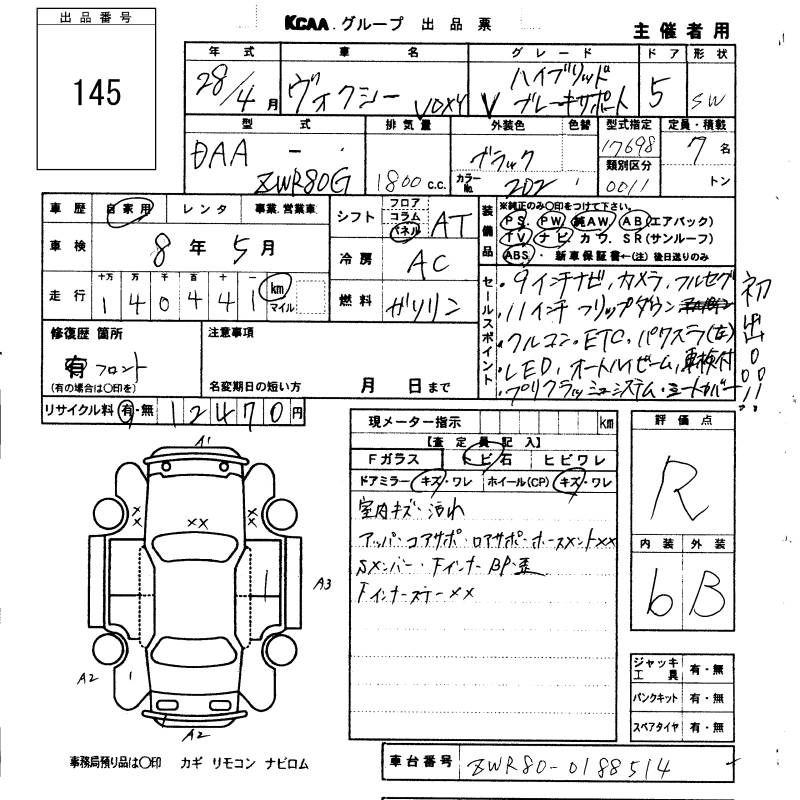 出品番号
145
KCAA グループ 出品票
主催者用
年式 車名 グレード ドア 形状
28/4月 ヴォクシー VOXY V ハイブリッド
ブレーキサポート 5 SW
型式 排気量 外装色 色替 型式指定 定員・積載
DAA - ブラック 17698 7名
ZWR80G 1800 c.c. カラーNo. 202 類別区分 0011 トン
車歴 自家用 レンタ 事業.営業車
車検 8年5月
走行 十万 万 千 百 十 一
1 4 0 4 4 1 km マイル
シフト フロア コラム パネル AT
冷房 AC
燃料 ガソリン
装備品
※純正のみ〇印をつけて下さい。
PS. PW. 純AW. AB(エアバック)
TV ナビ. カワ. SR(サンルーフ)
ABS. ・新車保証書←(注)後日送りのみ
セールスポイント
・9インチナビ、カメラ、フルセグ
・11インチフリップダウン
・フルコン・ETC、パワスラ(左)
・LED、オートハイビーム、車検付
・プリクラッシュシステム・シートカバー!!
初出
修復歴 箇所
有 フロント
(有の場合は〇印を)
注意事項
名変期日の短い方 月 日まで
リサイクル料 有・無 12470円
現メーター指示 km
【査定員記入】
Fガラス トビ石 ヒビワレ
ドアミラー キズ・ワレ ホイール(CP) キズ・ワレ
室内キズ・汚れ
アッパ・コアサポ・ロアサポ・ホースメントXX
Sメンバー・Fインナー BP・歪
FインナーステーXX
評価点
R
内装 外装
6 B
ジャッキ工具 有・無
パンクキット 有・無
スペアタイヤ 有・無
A1
XX
XX
XX
1
A3
A2
1
A2
事務局預り品は〇印 カギ リモコン ナビロム
車台番号 ZWR80-0188514